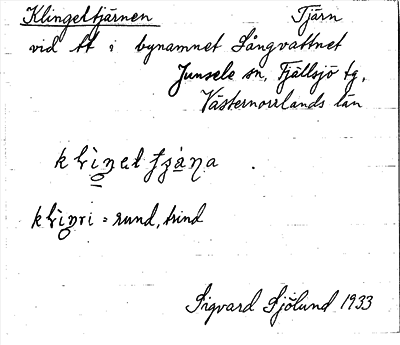 Klingeltjärnen Tjärn
vid tt i bynamnet Långvattnet
Junsele sn, Fjällsjö tg,
Västernorrlands län
rund, trind
Sigvard Sjölund 1933